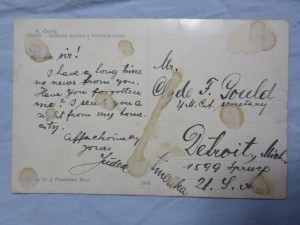 Dear sir!
I have a long time
no news from you.
Have you forgotten
me? I send you a
sight from my home
city.
Affectionately
yours
Mr.
Clyde F. Gould
Y.M.C.A. secretary
Detroit, Mich
1599 Spruce
America
U. S. A.